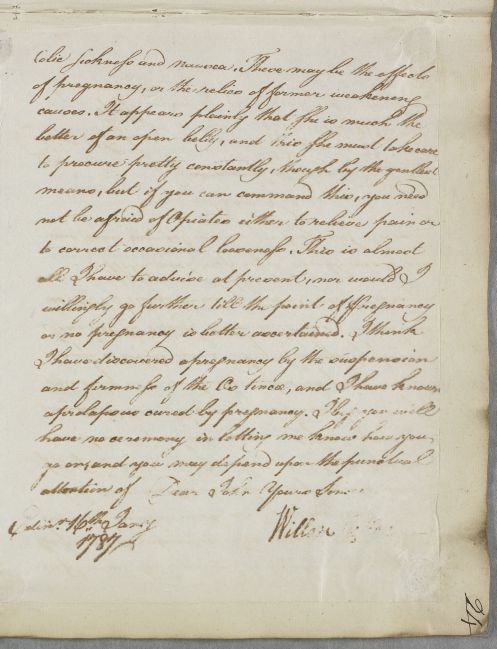 Colic Sickness and nausea. These may be the effects
of pregnancy, or the relics of former weakening
causes. It appears plainly that She is much the
better of an open belly, and this She must take care
to procure pretty constantly, though by the gentlest
means, but if you can command this, you need
not be afraid of Opiates either to relieve pain or
to correct occasional looseness. This is almost
all I have to advise at present, nor would I
willingly go further till the point of Pregnancy
or no pregnancy is better ascertained. I think
I have discovered a pregnancy by the suspension
and firmness of the Os tincæ, and I have known
a prolapsus cured by pregnancy. I beg you will
have no ceremony in letting me know how you
go on, and you may depend upon the punctual
attention of Dear John Yours
Edinr. 16th Jany
1787
Willm
24